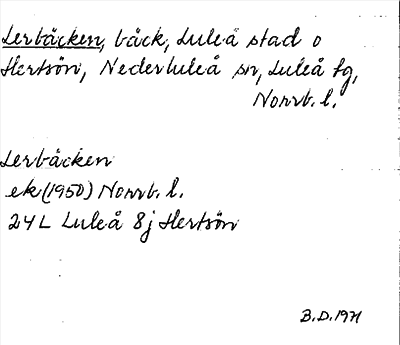 Lerbäcken, bäck, Luleå stad o
Hertsön, Nederluleå sn, Luleå tg,
Norrb. l.
Lerbäcken
ek (1950) Norrb. l.
24L Luleå 8j Hertsön
B.D. 1971